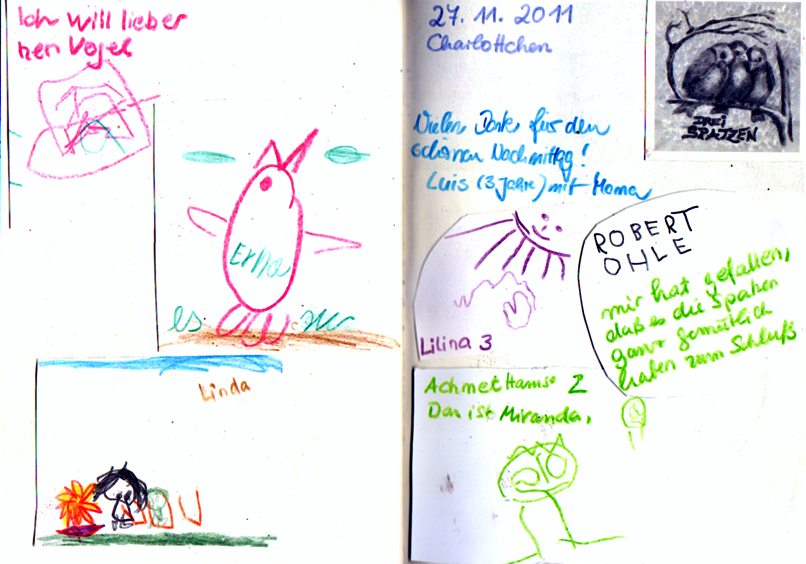 Ich will lieber
nen Vogel
Erna
Linda
27. 11. 2011
Charlottchen
DREI
SPATZEN
Vielen Dank für den
schönen Nachmittag!
Luis (3 Jahre) mit Mama
Lilina 3
ROBERT
OHLE
mir hat gefallen,
daß es die Spatzen
ganz gemütlich
haben zum Schluß
Achmet Hamso 2
Das ist Miranda.